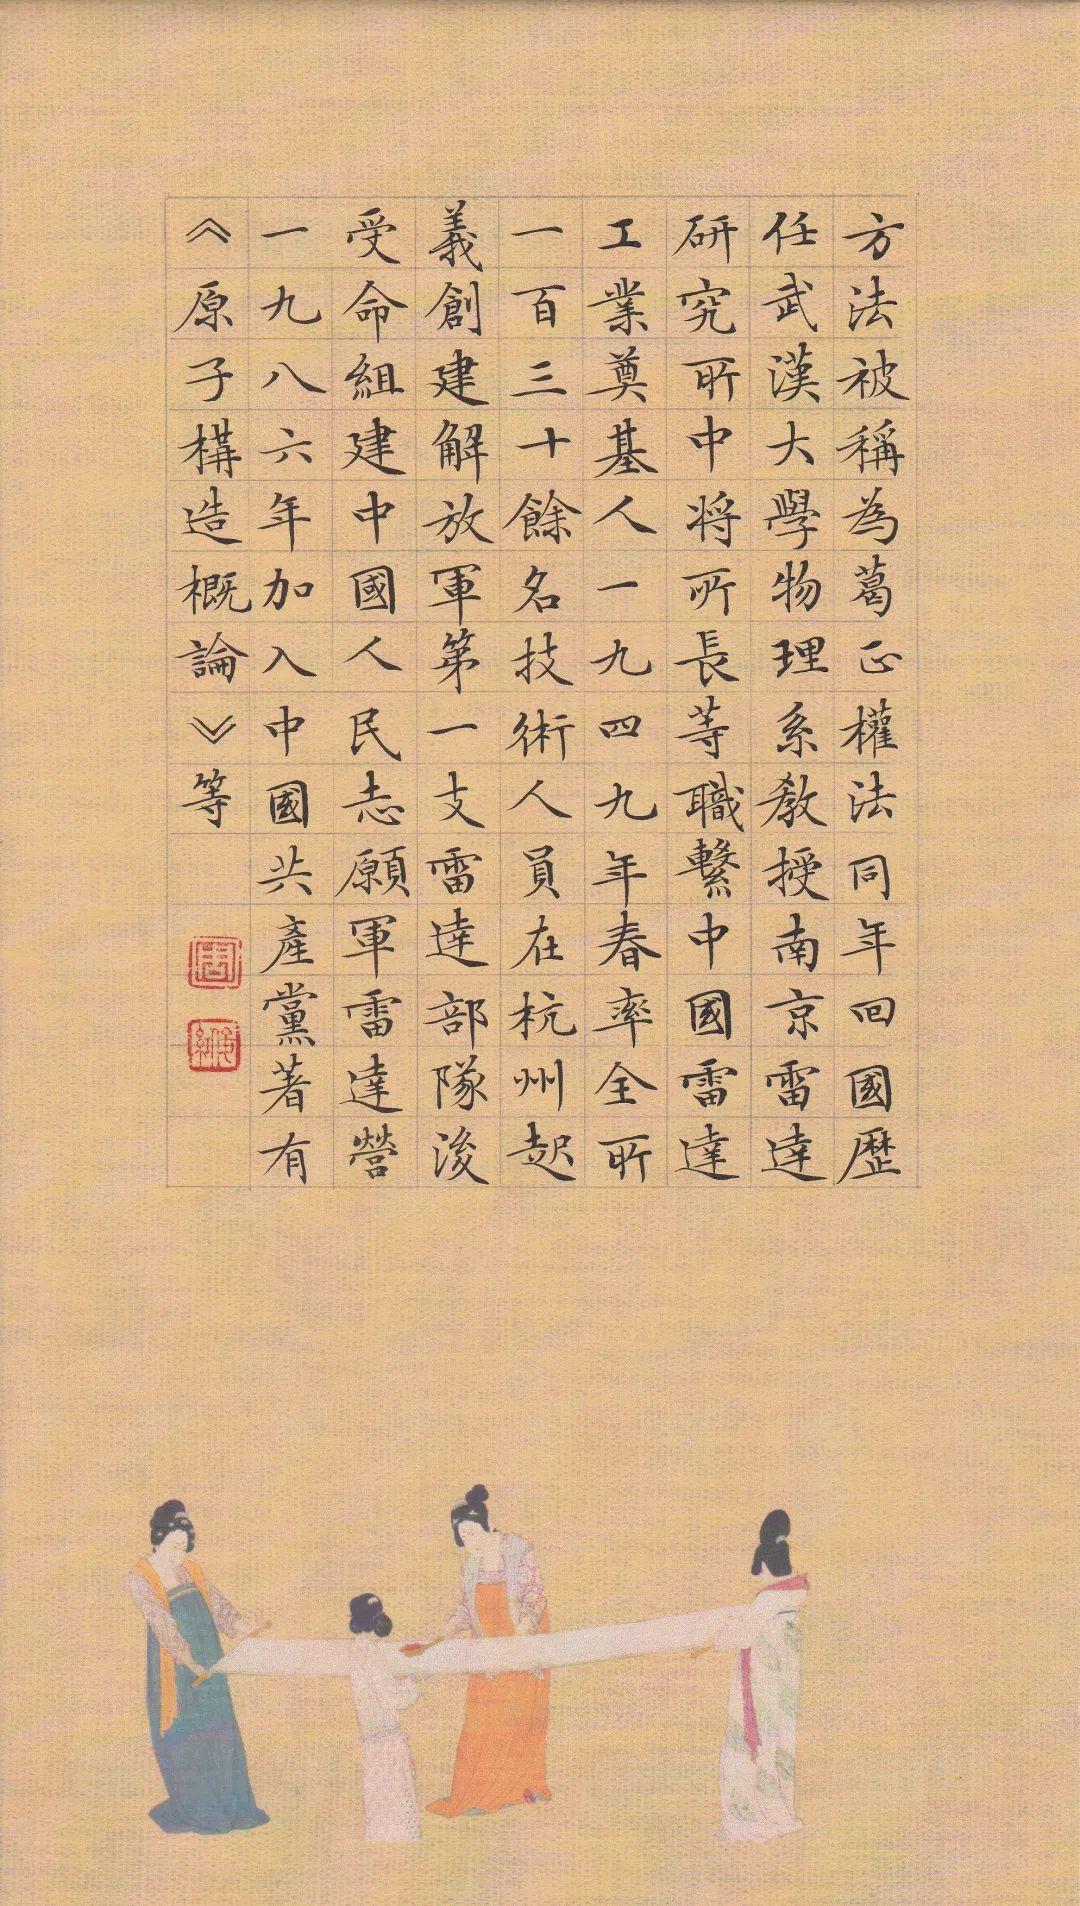 方法被稱為葛正權法同年回國歷
任武漢大學物理系教授南京雷達
研究所中將所長等職繫中國雷達
工業奠基人一九四九年春率全所
一百三十餘名技術人員在杭州起
義創建解放軍第一支雷達部隊後
受命組建中國人民志願軍雷達營
一九八六年加入中國共產黨著有
《原子構造概論》等